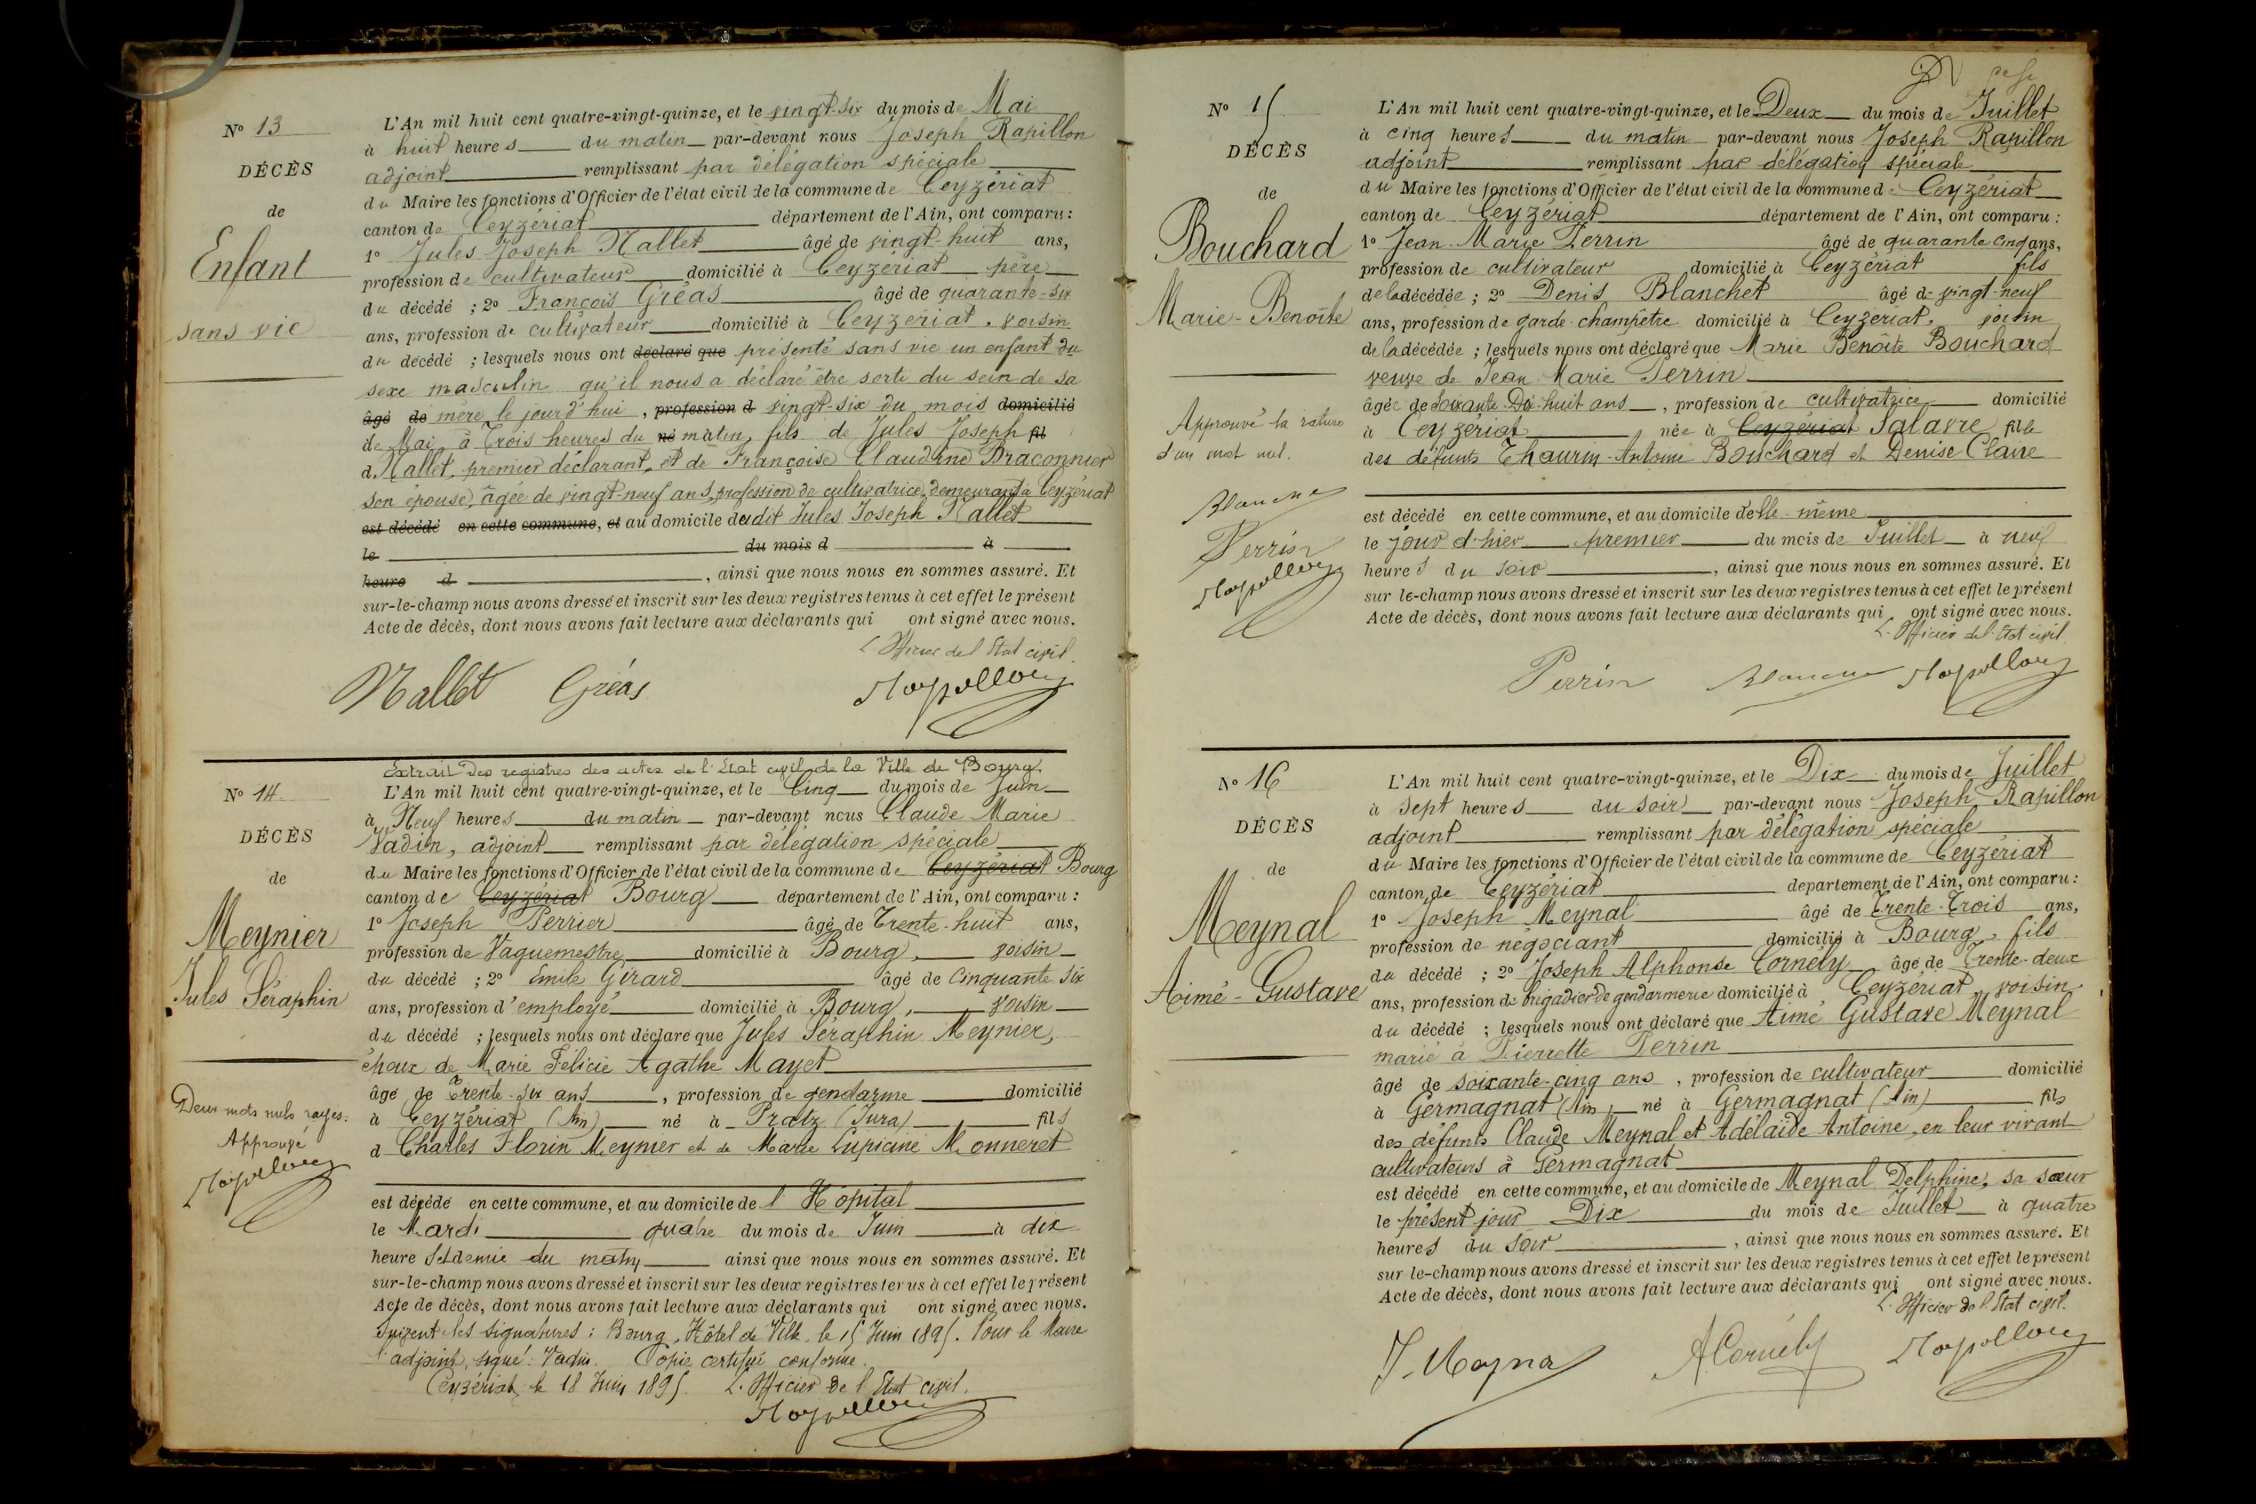 N° 13
DÉCÈS
de
Enfant
sans vie
L'An mil huit cent quatre-vingt-quinze, et le vingt-six du mois de Mai
à huit heures du matin par-devant nous Joseph Rapillon
adjoint remplissant par délégation spéciale
du Maire les fonctions d'Officier de l'état civil de la commune de Ceyzériat
canton de Ceyzériat département de l'Ain, ont comparu :
1° Jules Joseph Mallet âgé de vingt-huit ans,
profession de cultivateur domicilié à Ceyzériat père
du décédé ; 2° François Gréas âgé de quarante-six
ans, profession de cultivateur domicilié à Ceyzériat, voisin
du décédé ; lesquels nous ont déclaré que présenté sans vie un enfant du
sexe masculin qu'il nous a déclaré être sorti du sein de sa
âgé de mère le jour d'hui, profession d vingt-six du mois domicilié
de Mai à Trois heures du né matin, fils de Jules Joseph fil
d Mallet, premier déclarant, et de Françoise Claudine Braconnier
son épouse, âgée de vingt-neuf ans, profession de cultivatrice, demeurant à Ceyzériat
est décédé en cette commune, et au domicile dudit Jules Joseph Mallet
le du mois d à
heure d , ainsi que nous nous en sommes assuré. Et
sur-le-champ nous avons dressé et inscrit sur les deux registres tenus à cet effet le présent
Acte de décès, dont nous avons fait lecture aux déclarants qui ont signé avec nous.
L'Officier de l'Etat civil.
Mallet Gréas Rapillon
N° 14
DÉCÈS
de
Meynier
Jules Séraphin
Deux mots nuls rayés.
Approuvé
Rapillon
Extrait des registres des actes de l'Etat civil de la Ville de Bourg.
L'An mil huit cent quatre-vingt-quinze, et le Cinq du mois de Juin
à Neuf heures du matin par-devant nous Claude Marie
Vadin, adjoint remplissant par délégation spéciale
du Maire les fonctions d'Officier de l'état civil de la commune de Ceyzériat Bourg
canton de Ceyzériat Bourg département de l'Ain, ont comparu :
1° Joseph Perrier âgé de Trente-huit ans,
profession de Vaguemestre domicilié à Bourg, voisin
du décédé ; 2° Emile Girard âgé de Cinquante six
ans, profession d'employé domicilié à Bourg, voisin
du décédé ; lesquels nous ont déclaré que Jules Séraphin Meynier,
époux de Marie Félicie Agathe Mayet
âgé de Trente-six ans, profession de gendarme domicilié
à Ceyzériat (Ain) né à Pratz (Jura) fils
d Charles Florin Meynier et de Marie Lupicine Monneret
est décédé en cette commune, et au domicile de l'Hôpital
le Mardi quatre du mois de Juin à dix
heures et demie du matin ainsi que nous nous en sommes assuré. Et
sur-le-champ nous avons dressé et inscrit sur les deux registres tenus à cet effet le présent
Acte de décès, dont nous avons fait lecture aux déclarants qui ont signé avec nous.
Suivent les signatures : Bourg, Hôtel de Ville, le 15 Juin 1895. Pour le Maire
l'adjoint, signé : Vadin. Copie certifié conforme.
Ceyzériat, le 18 Juin 1895. L'Officier de l'Etat civil.
Rapillon
N° 15
DÉCÈS
de
Bouchard
Marie-Benoîte
Approuvé la rature
d'un mot nul.
Blanchet
Perrin
Rapillon
L'An mil huit cent quatre-vingt-quinze, et le Deux du mois de Juillet
à cinq heures du matin par-devant nous Joseph Rapillon
adjoint remplissant par délégation spéciale
du Maire les fonctions d'Officier de l'état civil de la commune de Ceyzériat
canton de Ceyzériat département de l'Ain, ont comparu :
1° Jean-Marie Perrin âgé de quarante cinq ans,
profession de cultivateur domicilié à Ceyzériat fils
de la décédée ; 2° Denis Blanchet âgé de vingt-neuf
ans, profession de garde-champêtre domicilié à Ceyzériat, voisin
de la décédée ; lesquels nous ont déclaré que Marie Benoîte Bouchard
veuve de Jean Marie Perrin
âgée de Soixante-Dix-huit ans, profession de cultivatrice domicilié
à Ceyzériat née à Ceyzériat Salavre fille
des défunts Thaurin-Antoine Bouchard et Denise Claire
est décédé en cette commune, et au domicile d'elle-même
le jour d'hier premier du mois de Juillet à neuf
heures du soir, ainsi que nous nous en sommes assuré. Et
sur le-champ nous avons dressé et inscrit sur les deux registres tenus à cet effet le présent
Acte de décès, dont nous avons fait lecture aux déclarants qui ont signé avec nous.
L'Officier de l'Etat civil.
Perrin Blanchet Rapillon
N° 16
DÉCÈS
de
Meynal
Aimé-Gustave
L'An mil huit cent quatre-vingt-quinze, et le Dix du mois de Juillet
à sept heures du soir par-devant nous Joseph Rapillon
adjoint remplissant par délégation spéciale
du Maire les fonctions d'Officier de l'état civil de la commune de Ceyzériat
canton de Ceyzériat département de l'Ain, ont comparu :
1° Joseph Meynal âgé de Trente-Trois ans,
profession de négociant domicilié à Bourg, fils
du décédé ; 2° Joseph Alphonse Cornély âgé de Trente-deux
ans, profession de brigadier de gendarmerie domicilié à Ceyzériat, voisin
du décédé ; lesquels nous ont déclaré que Aimé Gustave Meynal
marié à Pierrette Perrin
âgé de soixante-cinq ans, profession de cultivateur domicilié
à Germagnat (Ain) né à Germagnat (Ain) fils
des défunts Claude Meynal et Adélaïde Antoine, en leur vivant
cultivateurs à Germagnat
est décédé en cette commune, et au domicile de Meynal Delphine, sa sœur
le présent jour Dix du mois de Juillet à quatre
heures du soir, ainsi que nous nous en sommes assuré. Et
sur le-champ nous avons dressé et inscrit sur les deux registres tenus à cet effet le présent
Acte de décès, dont nous avons fait lecture aux déclarants qui ont signé avec nous.
L'Officier de l'Etat civil.
J. Meynal A Cornély Rapillon